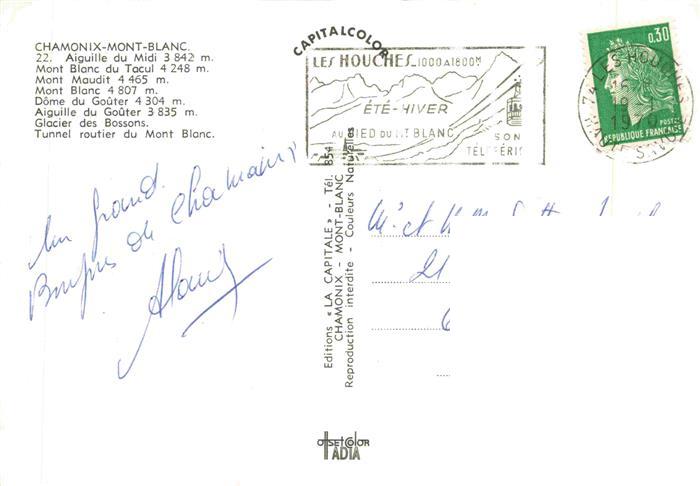 CHAMONIX-MONT-BLANC.
22. Aiguille du Midi 3 842 m.
Mont Blanc du Tacul 4 248 m.
Mont Maudit 4 465 m.
Mont Blanc 4 807 m.
Dôme du Goûter 4 304 m.
Aiguille du Goûter 3 835 m.
Glacier des Bossons.
Tunnel routier du Mont Blanc.
Un grand
Bonjour de Chamonix
CAPITALCOLOR
LES HOUCHES_1000A1800M
ÉTÉ-HIVER
AU PIED DU MT BLANC
SON
TÉLÉFÉRI
0.30
POSTES
REPUBLIQUE FRANÇAISE
74 LES HOUCHES
Editions « LA CAPITALE » - Tél. 854
CHAMONIX - MONT-BLANC
Reproduction interdite - Couleurs Naturelles
Mr et
offsetcolor
ADIA